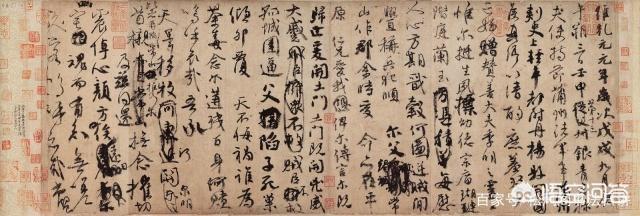 維乾元元年歲次戊戌九月庚
午朔三日壬申第十三叔銀青光祿
夫使持節蒲州諸軍事蒲州
刺史上輕車都尉丹楊縣開國
侯真卿以清酌庶羞祭于
亡姪贈贊善大夫季明之靈曰
惟爾挺生夙標幼德宗廟瑚璉
階庭蘭玉每慰
人心方期戩穀何圖逆賊間
釁稱兵犯順
爾父竭誠常
山作郡余時受命亦在平
原仁兄愛我俾爾傳言爾既
歸止爰開土門土門既開凶威
大蹙賊臣不救
孤城圍逼父陷子死巢
傾卵覆天不悔禍誰為
荼毒念爾遘殘百身何贖
嗚乎哀哉吾承
天澤移牧河關泉明
首櫬及茲同還撫念摧切
震悼心顏方俟遠日
魂而有知無嗟
百家号
悟空问答